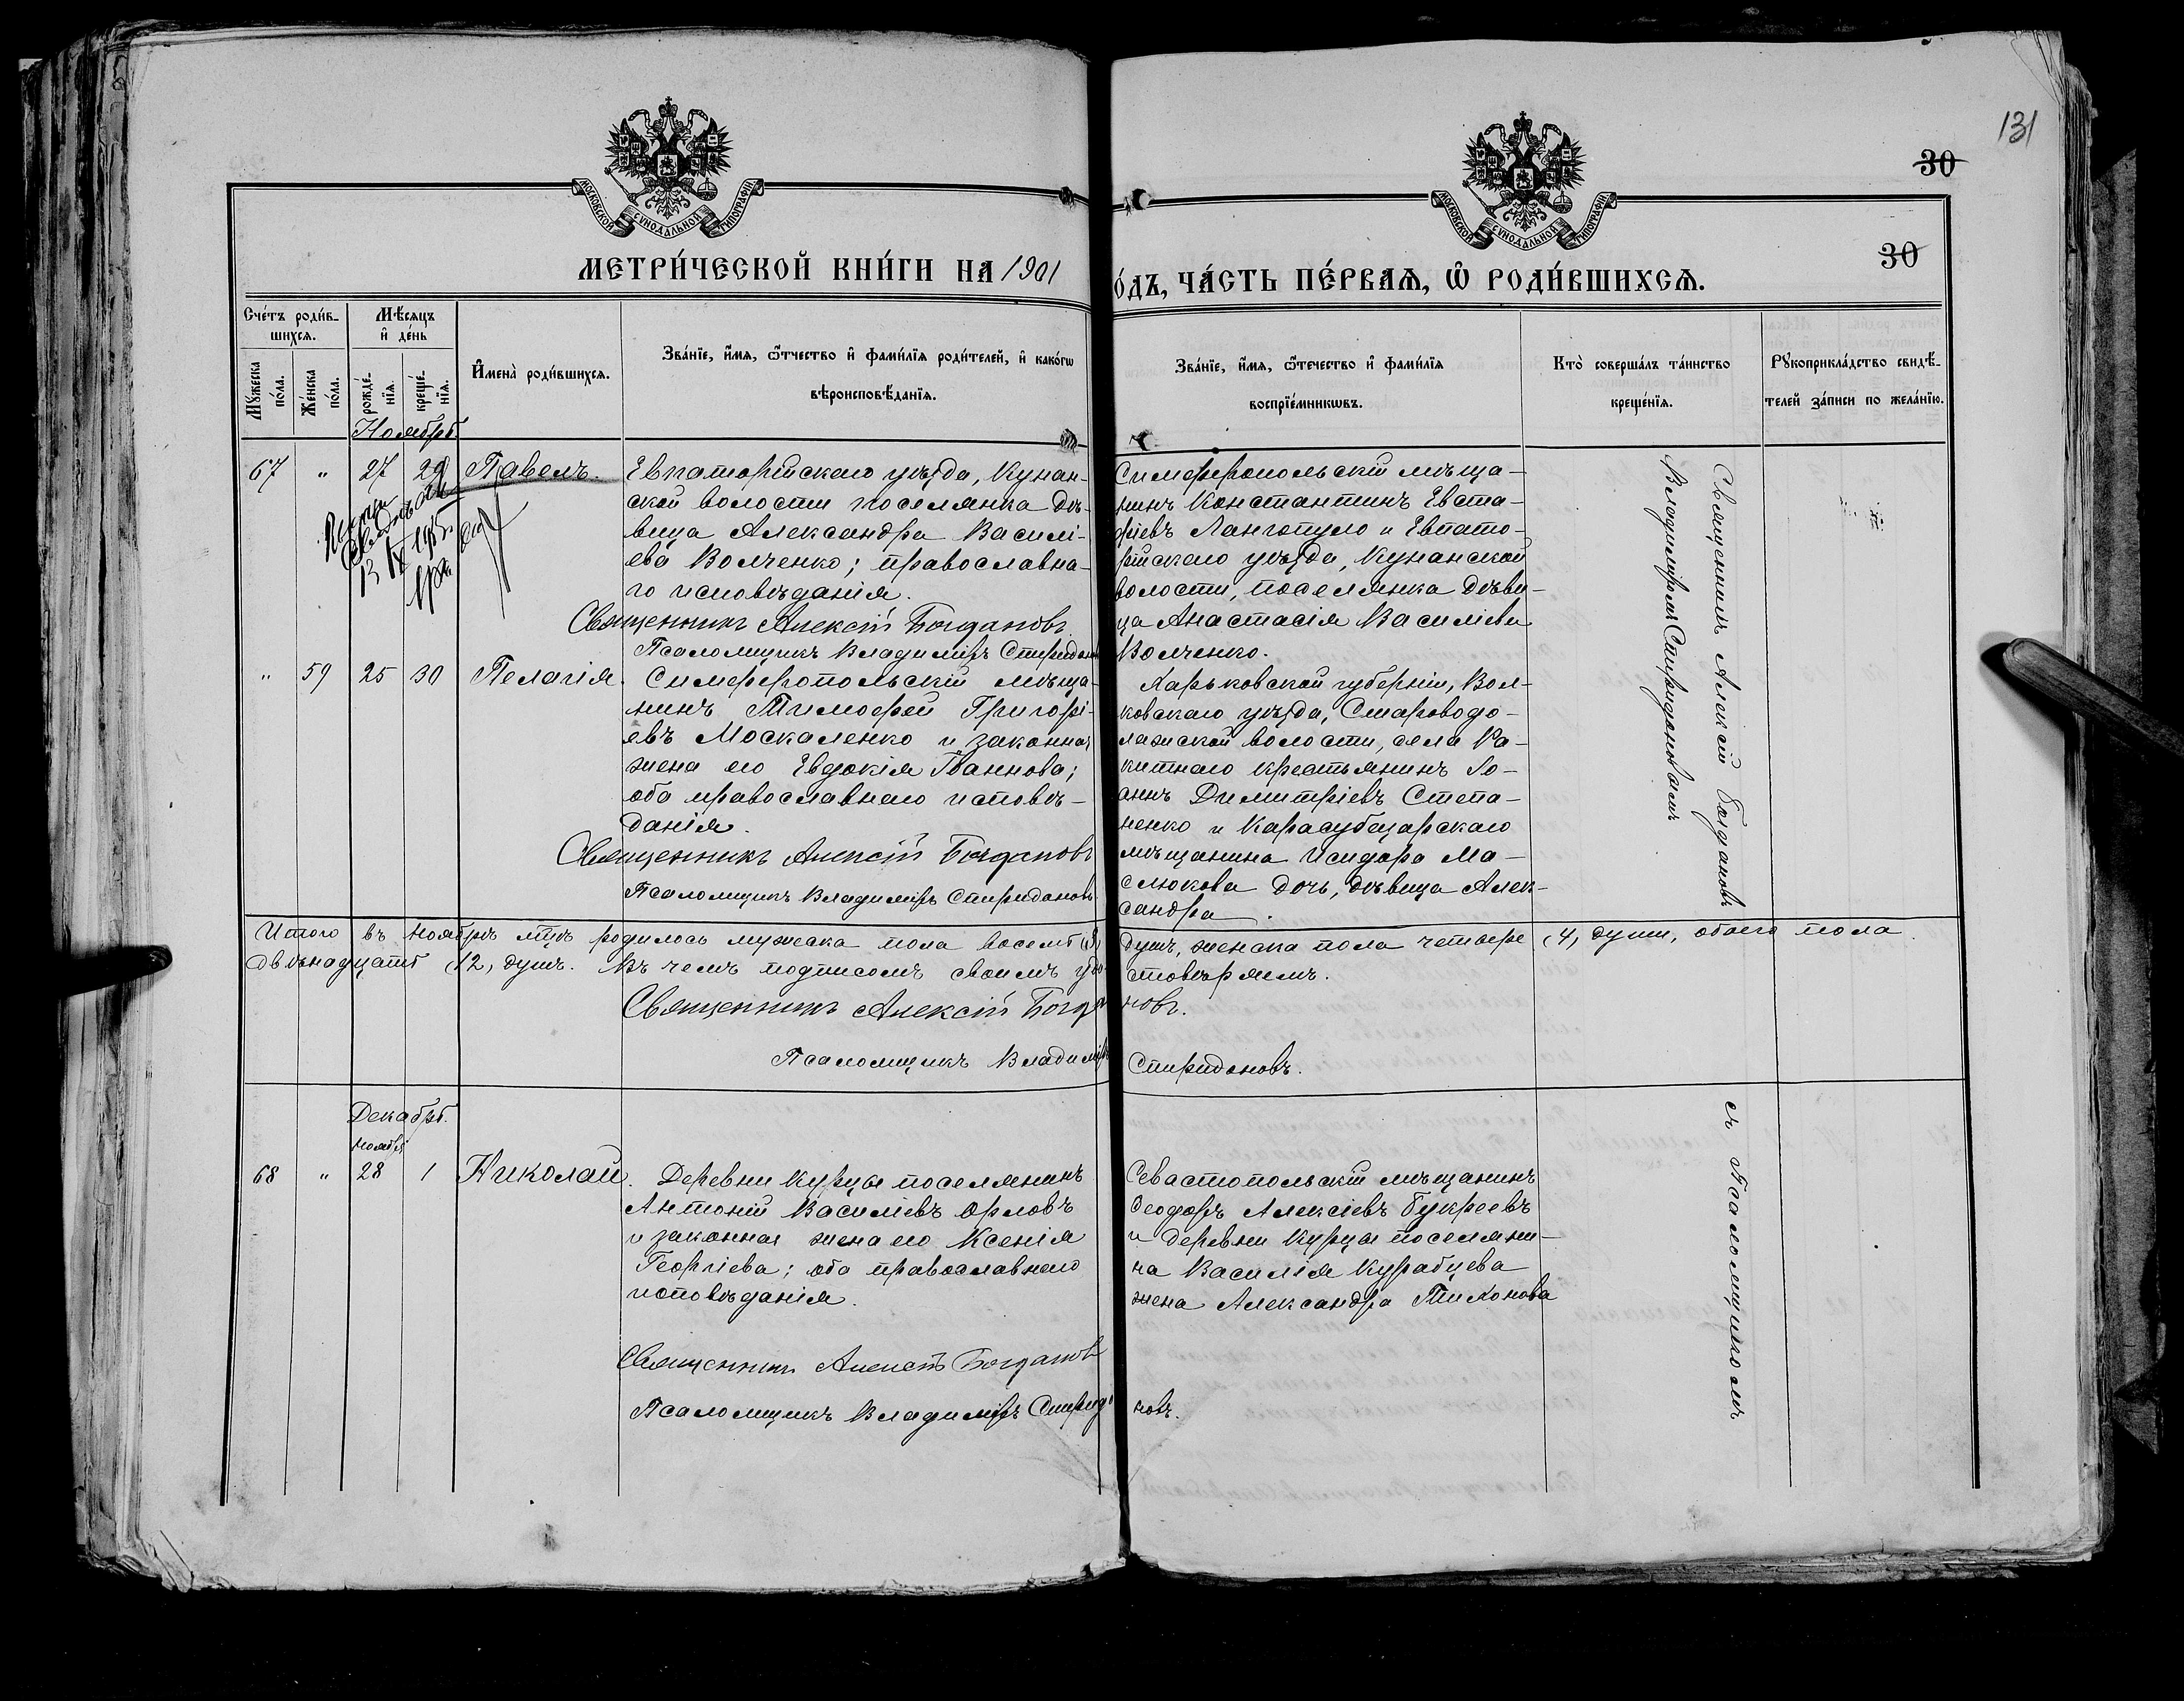 131
30
30
МОСКОВСКОЙ СУНОДАЛЬНОЙ ТИПОГРАФІИ
МОСКОВСКОЙ СУНОДАЛЬНОЙ ТИПОГРАФІИ
МЕТРИ́ЧЕСКОЙ КНИ́ГИ НА 1901
О́ДЪ, ЧА́СТЬ ПЕ́РВАѦ, Ѽ РОДИ́ВШИХСѦ.
Сче́тъ роди́в-
шихсѧ.
Мꙋ́жеска по́ла.
Же́нска по́ла.
Мѣ́сѧцъ
и҆ де́нь
рожде́-нїѧ.
креще́-нїѧ.
И҆мена̀ роди́вшихсѧ.
Зва́нїе, и҆́мѧ, ѻ҆́тчество и҆ фами́лїѧ роди́телей, и҆ како́гѡ
вѣроисповѣ́данїѧ.
Зва́нїе, и҆́мѧ, ѻ҆́течество и҆ фами́лїѧ
воспрїе́мникѡвъ.
Кто̀ соверша́лъ та́инство
креще́нїѧ.
Рꙋкоприкла́дство свидѣ́-
телей за́писи по жела́нїю.
Ноябрь
67 " 27 29 Павелъ.
Евпаторійскаго уѣзда, Кунан-
ской волости поселянка дѣ-
вица Александра Василі-
ева Волченко; православна-
го исповѣданія.
Священникъ Алексій Богдановъ
Псаломщикъ Владиміръ Спиридоновъ
Симферопольскій мѣща-
нинъ Константинъ Евста-
фіевъ Лангопуло и Евпато-
рійскаго уѣзда, Кунанской
волости, поселянка дѣви-
ца Анастасія Василіева
Волченко.
" 59 25 30 Пелагія.
Симферопольскій мѣща-
нинъ Тимоѳей Григорі-
евъ Москаленко и законная
жена его Евдокія Іоаннова;
оба православнаго исповѣ-
данія.
Священникъ Алексій Богдановъ
Псаломщикъ Владиміръ Спиридоновъ.
Харьковской губерніи, Вол-
ковскаго уѣзда, Староводо-
лажской волости, села Ра-
китнаго крестьянинъ Іо-
аннъ Димитріевъ Степа-
ненко и Карасубазарскаго
мѣщанина Исидора Ма-
слюкова дочь, дѣвица Алек-
сандра.
Священникъ Алексій Богдановъ
Владиміромъ Спиридоновымъ
Итого въ ноябрѣ мцѣ родилось мужеска пола восемь (8) душъ, женска пола четыре (4) души, обоего пола
двѣнадцать (12) душъ. Въ чемъ подписомъ своимъ удостовѣряемъ.
Священникъ Алексій Богдановъ.
Псаломщикъ Владиміръ Спиридоновъ.
Декабрь.
ноября
68 " 28 1 Николай.
Деревни Курцы поселянинъ
Антоній Василіевъ Орловъ
и законная жена его Ксенія
Георгіева; оба православнаго
исповѣданія.
Священникъ Алексій Богдановъ
Псаломщикъ Владиміръ Спиридоновъ.
Севастопольскій мѣщанинъ
Ѳеодоръ Алексіевъ Букреевъ
и деревни Курцы поселяни-
на Василія Курабцева
жена Александра Тихонова
съ Псаломщикомъ